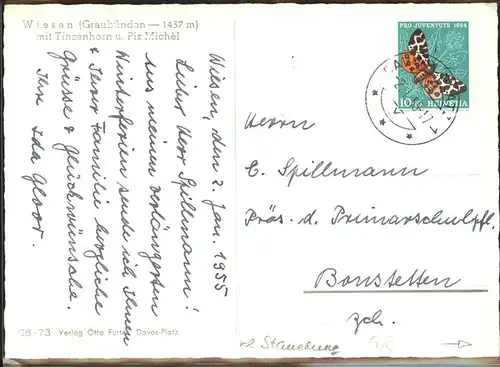 Wiesen (Graubünden — 1437 m)
mit Tinzenhorn u. Piz Michèl
Wiesen, den 2. Jan. 1955
Lieber Herr Spillmann!
Aus meinen verlängerten
Winterferien sende ich Ihnen
& Ihrer Familie herzliche
Grüsse & Glückwünsche.
Ihre Ida Gloor.
08-73 Verlag Otto Furter, Davos-Platz
PRO JUVENTUTE 1954
10+10 HELVETIA
Herrn
E. Spillmann
Präs. d. Primarschulpfl.
Bonstetten
Zch.